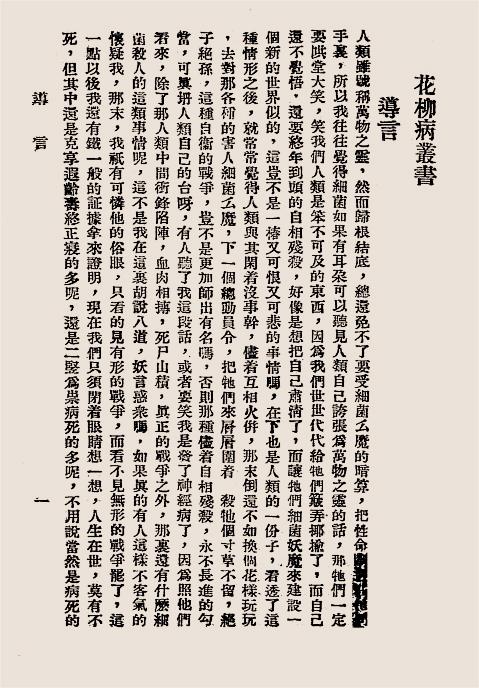 花柳病叢書
導言
人類雖號稱萬物之靈，然而歸根結底，總還免不了要受細菌么魔的暗算，把性命
手裏，所以我往往覺得細菌如果有耳朶可以聽見人類自己誇張爲萬物之靈的話，那牠們一定
要鬨堂大笑，笑我們人類是笨不可及的東西，因爲我們世世代代給牠們簸弄揶揄了，而自己
還不覺悟，還要終年到頭的自相殘殺，好像是想把自己肅清了，而讓牠們細菌妖魔來建設一
個新的世界似的，這豈不是一樁又可恨又可悲的事情嗎，在下也是人類的一份子，看透了這
種情形之後，就常常覺得人類與其閑着沒事幹，儘着互相火倂，那末倒還不如換個花樣玩玩
，去對那各種的害人細菌么魔，下一個總動員令，把牠們來層層圍着　殺牠個寸草不留，絕
子絕孫，這種自衞的戰爭，豈不是更加師出有名嗎，否則那種儘着自相殘殺，永不長進的勾
當，可眞坍人類自己的台呀，有人聽了我這段話，或者要笑我是發了神經病了，因爲照他們
看來，除了那人類中間衝鋒陷陣，血肉相搏，死尸山積，眞正的戰爭之外，那裏還有什麼細
菌殺人的這類事情呢，這不是我在這裏胡說八道，妖言惑衆嗎，如果眞的有人這樣不客氣的
懷疑我，那末，我祇有可憐他的俗眼，只看的見有形的戰爭，而看不見無形的戰爭罷了，這
一點以後我還有鐵一般的証據拿來證明，現在我們只須閉着眼睛想一想，人生在世，莫有不
死，但其中還是克享遐齡壽終正寢的多呢，還是二豎爲祟病死的多呢，不用說當然是病死的
導言
一